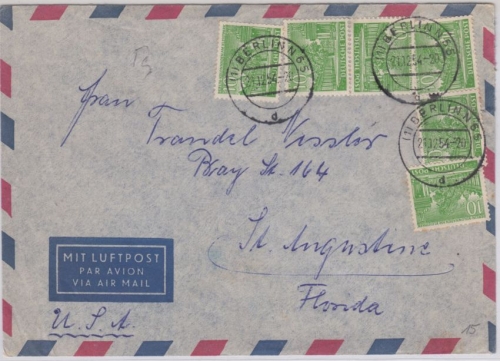 (1) BERLIN N 65
21.12.54-20
d
(1) BERLIN N 65
21.12.54-20
(1) BERLIN N 65
21.12.54-20
d
DEUTSCHE POST
10
10
Frau
Trandel Vesslór
Bay St. 164
St. Augustine
Florida
MIT LUFTPOST
PAR AVION
VIA AIR MAIL
U.S.A.
15